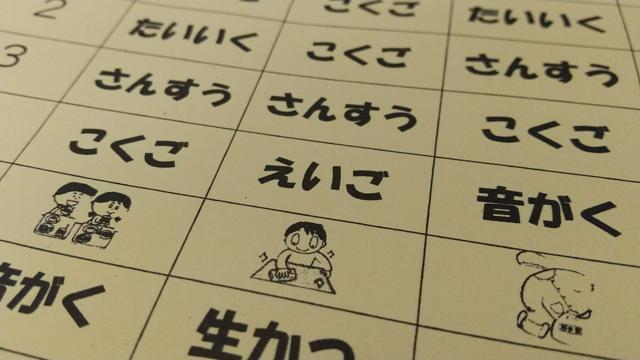 2 こくご たいいく
3 たいいく こくご さんすう
さんすう さんすう こくご
こくご えいご 音がく
音がく 生かつ